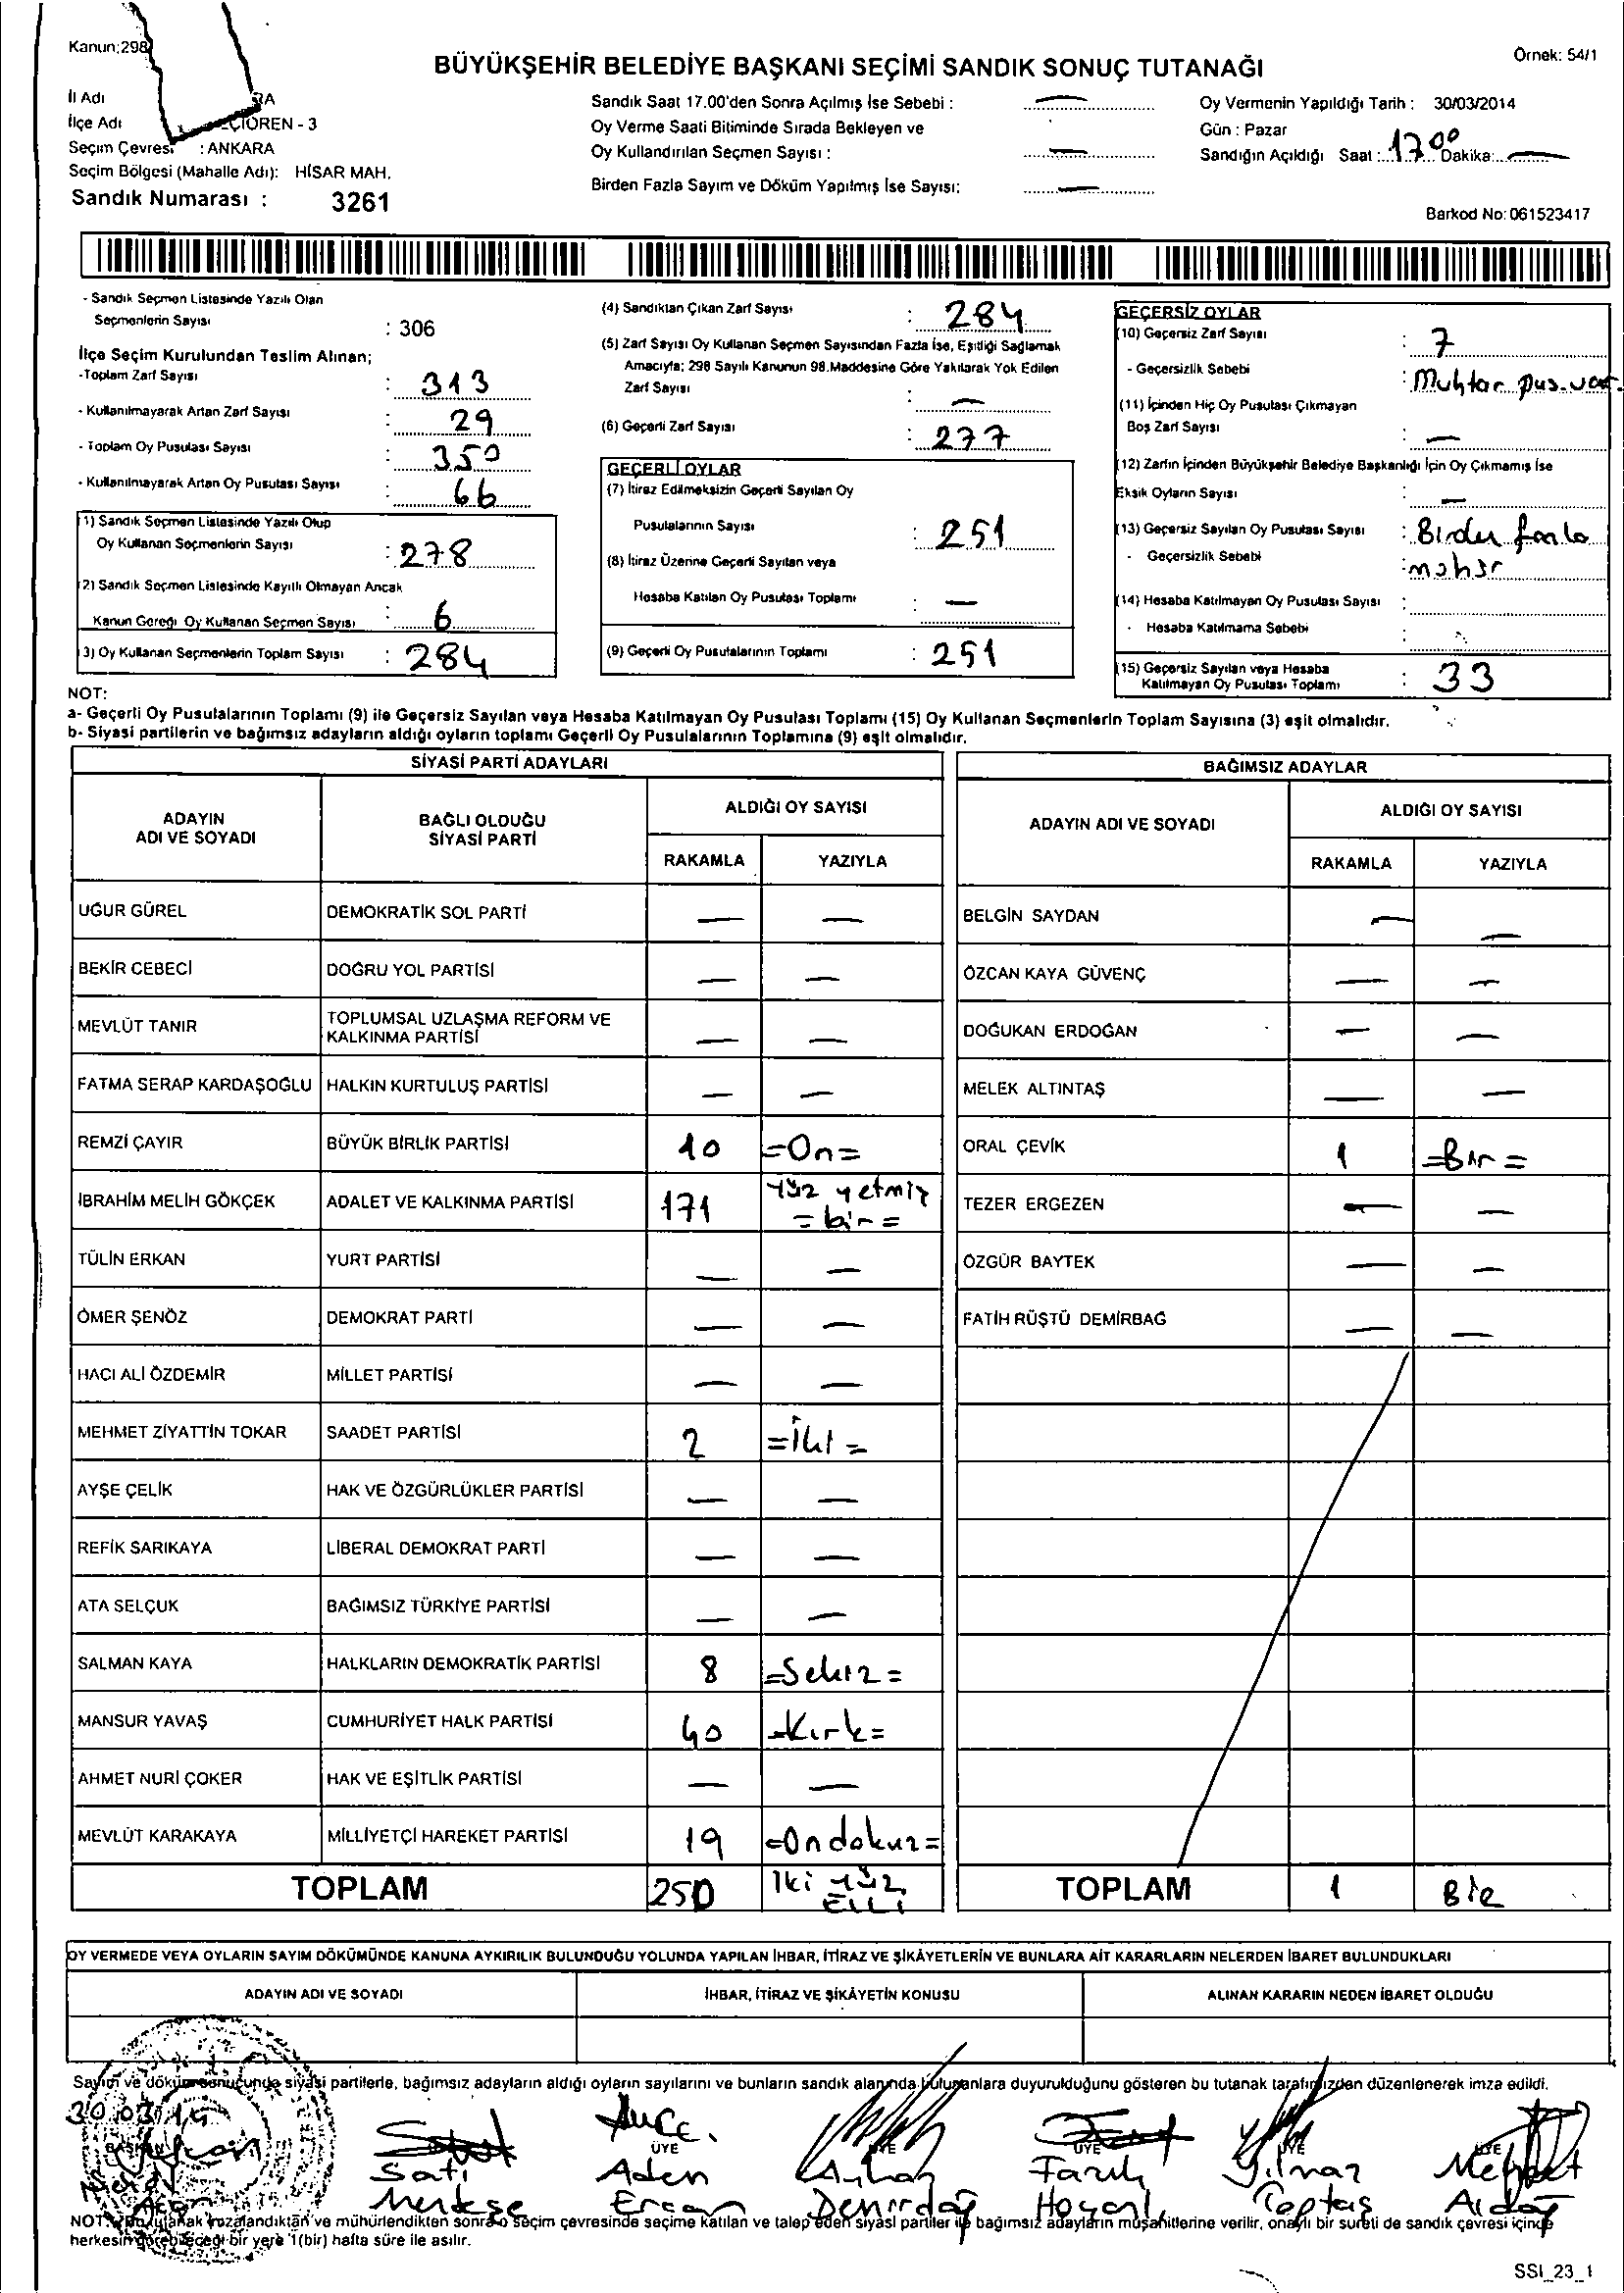 Kanun;298
Örnek: 54/1
BÜYÜKŞEHİR BELEDİYE BAŞKANI SEÇİMİ SANDIK SONUÇ TUTANAĞI
İl Adı
İlçe Adı
Seçim Çevresi : ANKARA
Seçim Bölgesi (Mahalle Adı): HİSAR MAH.
Sandık Numarası : 3261
Sandık Saat 17.00'den Sonra Açılmış İse Sebebi : —
Oy Verme Saati Bitiminde Sırada Bekleyen ve
Oy Kullandırılan Seçmen Sayısı : —
Birden Fazla Sayım ve Döküm Yapılmış İse Sayısı: —
Oy Vermenin Yapıldığı Tarih : 30/03/2014
Gün : Pazar
Sandığın Açıldığı Saat : 17 00 Dakika: —
Barkod No: 061523417
- Sandık Seçmen Listesinde Yazılı Olan
Seçmenlerin Sayısı : 306
İlçe Seçim Kurulundan Teslim Alınan;
-Toplam Zarf Sayısı : 313
- Kullanılmayarak Artan Zarf Sayısı : 29
- Toplam Oy Pusulası Sayısı : 350
- Kullanılmayarak Artan Oy Pusulası Sayısı : 66
(1) Sandık Seçmen Listesinde Yazılı Olup
Oy Kullanan Seçmenlerin Sayısı : 278
(2) Sandık Seçmen Listesinde Kayıtlı Olmayan Ancak
Kanun Gereği Oy Kullanan Seçmen Sayısı : 6
(3) Oy Kullanan Seçmenlerin Toplam Sayısı : 284
(4) Sandıktan Çıkan Zarf Sayısı : 284
(5) Zarf Sayısı Oy Kullanan Seçmen Sayısından Fazla İse, Eşitliği Sağlamak
Amacıyla; 298 Sayılı Kanunun 98.Maddesine Göre Yakılarak Yok Edilen
Zarf Sayısı : —
(6) Geçerli Zarf Sayısı : 277
GEÇERLİ OYLAR
(7) İtiraz Edilmeksizin Geçerli Sayılan Oy
Pusulalarının Sayısı : 251
(8) İtiraz Üzerine Geçerli Sayılan veya
Hesaba Katılan Oy Pusulası Toplamı : —
(9) Geçerli Oy Pusulalarının Toplamı : 251
GEÇERSİZ OYLAR
(10) Geçersiz Zarf Sayısı : 7
- Geçersizlik Sebebi : Muhtar pus.
(11) İçinden Hiç Oy Pusulası Çıkmayan
Boş Zarf Sayısı : —
(12) Zarfın İçinden Büyükşehir Belediye Başkanlığı İçin Oy Çıkmamış İse
Eksik Oyların Sayısı : —
(13) Geçersiz Sayılan Oy Pusulası Sayısı : Birden fazla
- Geçersizlik Sebebi : mühür
(14) Hesaba Katılmayan Oy Pusulası Sayısı :
- Hesaba Katılmama Sebebi :
(15) Geçersiz Sayılan veya Hesaba
Katılmayan Oy Pusulası Toplamı : 33
NOT:
a- Geçerli Oy Pusulalarının Toplamı (9) ile Geçersiz Sayılan veya Hesaba Katılmayan Oy Pusulası Toplamı (15) Oy Kullanan Seçmenlerin Toplam Sayısına (3) eşit olmalıdır.
b- Siyasi partilerin ve bağımsız adayların aldığı oyların toplamı Geçerli Oy Pusulalarının Toplamına (9) eşit olmalıdır.
SİYASİ PARTİ ADAYLARI
ADAYIN ADI VE SOYADI
BAĞLI OLDUĞU SİYASİ PARTİ
ALDIĞI OY SAYISI
RAKAMLA YAZIYLA
UĞUR GÜREL DEMOKRATİK SOL PARTİ — —
BEKİR CEBECİ DOĞRU YOL PARTİSİ — —
MEVLÜT TANIR TOPLUMSAL UZLAŞMA REFORM VE KALKINMA PARTİSİ — —
FATMA SERAP KARDAŞOĞLU HALKIN KURTULUŞ PARTİSİ — —
REMZİ ÇAYIR BÜYÜK BİRLİK PARTİSİ 10 =On=
İBRAHİM MELİH GÖKÇEK ADALET VE KALKINMA PARTİSİ 171 Yüz yetmiş =bir=
TÜLİN ERKAN YURT PARTİSİ — —
ÖMER ŞENÖZ DEMOKRAT PARTİ — —
HACI ALİ ÖZDEMİR MİLLET PARTİSİ — —
MEHMET ZİYATTİN TOKAR SAADET PARTİSİ 2 =İki=
AYŞE ÇELİK HAK VE ÖZGÜRLÜKLER PARTİSİ — —
REFİK SARIKAYA LİBERAL DEMOKRAT PARTİ — —
ATA SELÇUK BAĞIMSIZ TÜRKİYE PARTİSİ — —
SALMAN KAYA HALKLARIN DEMOKRATİK PARTİSİ 8 =Sekiz=
MANSUR YAVAŞ CUMHURİYET HALK PARTİSİ 40 =Kırk=
AHMET NURİ ÇOKER HAK VE EŞİTLİK PARTİSİ — —
MEVLÜT KARAKAYA MİLLİYETÇİ HAREKET PARTİSİ 19 =Ondokuz=
TOPLAM 250 İki yüz ELLİ
BAĞIMSIZ ADAYLAR
ADAYIN ADI VE SOYADI
ALDIĞI OY SAYISI
RAKAMLA YAZIYLA
BELGİN SAYDAN — —
ÖZCAN KAYA GÜVENÇ — —
DOĞUKAN ERDOĞAN — —
MELEK ALTINTAŞ — —
ORAL ÇEVİK 1 =Bir=
TEZER ERGEZEN — —
ÖZGÜR BAYTEK — —
FATİH RÜŞTÜ DEMİRBAĞ — —
TOPLAM 1 Bir
OY VERMEDE VEYA OYLARIN SAYIM DÖKÜMÜNDE KANUNA AYKIRILIK BULUNDUĞU YOLUNDA YAPILAN İHBAR, İTİRAZ VE ŞİKÂYETLERİN VE BUNLARA AİT KARARLARIN NELERDEN İBARET BULUNDUKLARI
ADAYIN ADI VE SOYADI
İHBAR, İTİRAZ VE ŞİKÂYETİN KONUSU
ALINAN KARARIN NEDEN İBARET OLDUĞU
Sayım ve döküm sonucunda siyasi partilerle, bağımsız adayların aldığı oyların sayılarını ve bunların sandık alanında bulunanlara duyurulduğunu gösteren bu tutanak tarafımızdan düzenlenerek imza edildi.
30.03.14
BAŞKAN ÜYE ÜYE ÜYE ÜYE ÜYE
Satı Aden Ayhan Faruk Yılmaz Mehmet
Menkşe Ercan Demirdağ Toptaş
NOT: Bu tutanak imzalandıktan ve mühürlendikten sonra o seçim çevresinde seçime katılan ve talep eden siyasi partiler ile bağımsız adayların müşahitlerine verilir, onaylı bir sureti de sandık çevresi içinde
herkesin görebileceği bir yere 1(bir) hafta süre ile asılır.
SSI_23_1